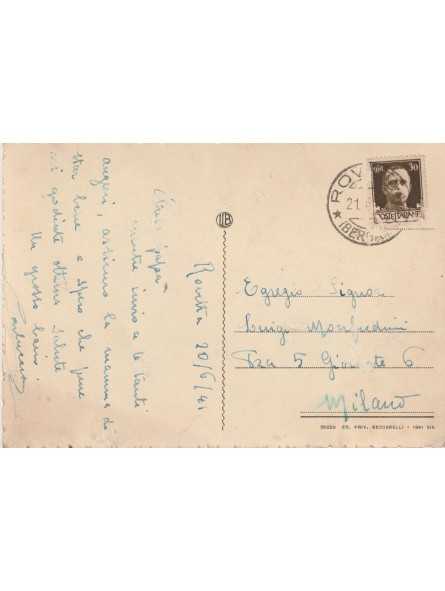 Rovetta 20/6/41
Caro papà
mentre invio a te tanti
auguri, assicuro la mamma di
star bene e spero che pure
voi godiate ottima salute
Un grosso bacio
ROV
21.6
★ (BERGAMO
30
POSTE ITALIANE
IIB
Egregio Signor
Luigi Manfredini
P.za 5 Giornate 6
Milano
ED. PRIV. BECCARELLI - 1941 XIX